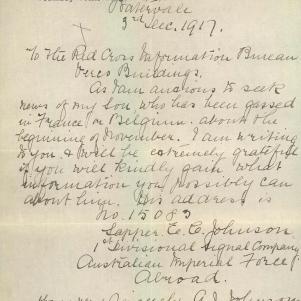 Watervale
3rd Dec. 1917.
To the Red Cross Information Bureau
Verco Buildings.
As I am anxious to seek
news of my Son who has been gassed
in France or Belgium about the
beginning of November. I am writing
to you & will be extremely grateful
if you will kindly gain what
information you possibly can
about him. His address is
No. 15083
Sapper E. C. Johnson
1st Divisional Signal Company
Australian Imperial Force
Abroad.
Sincerely A. J. Johnson